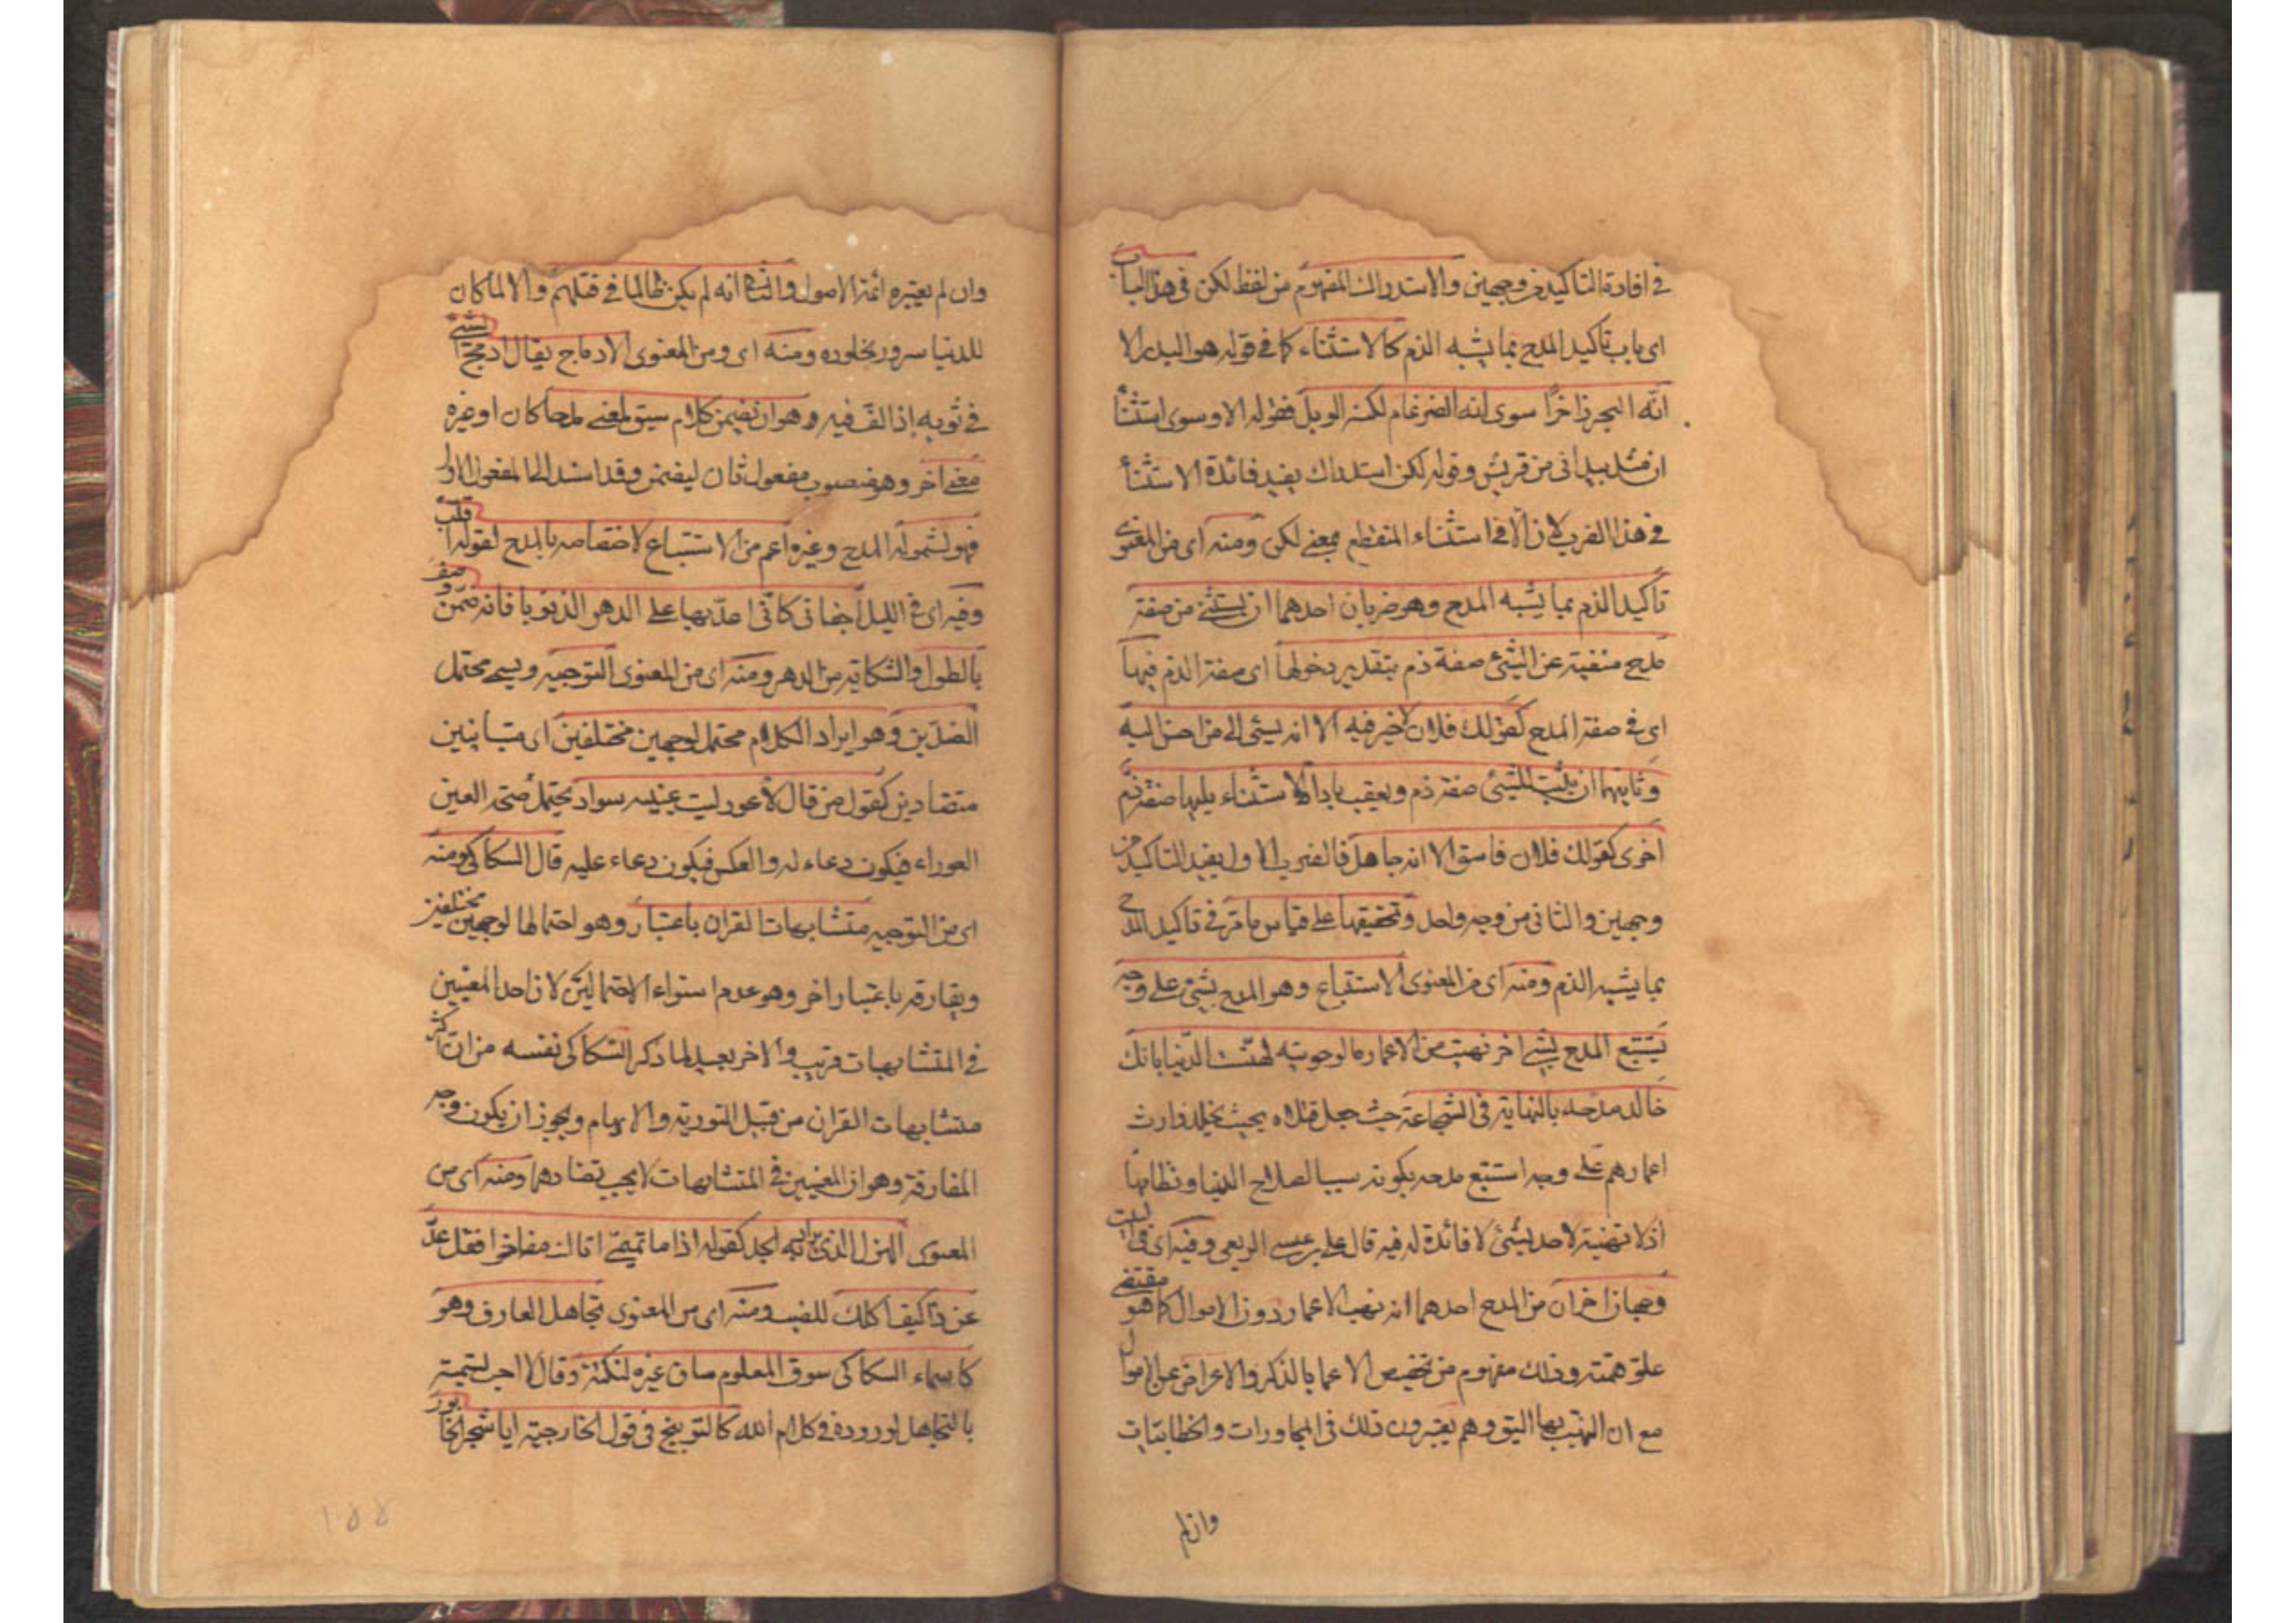 في افادة التاكيد من وجهين والاستدراك المفهوم من لفظ لكن في هذا الباب
اى باب تاكيد المدح بما يشبه الذم كالاستثناء كما في قوله هو البدر الا
انّه البحر زاخرًا سوى انه الضرغام لكنه الوبل فقوله الا وسوى استثنأ
ان مثل بيد انى من قريش وقوله لكن استدراك يفيد فائدة الاستثنأ
في هذا الضرب لان الّا في استثناء المنقطع بمعنى لكن ومنه اى من المعنوى
تاكيد الذم بما يشبه المدح وهو ضربان احدهما ان يستثنى من صفة
مدح منفية عن الشئ صفة ذم بتقدير دخولها اى صفة الذم فيها
اى في صفة المدح كقولك فلان لا خير فيه الا انه يسئ الى من احسن اليه
وثانيهما ان يثبت للشئ صفة ذم ويعقب باداة الاستثناء يليها صفة ذمّ
اخرى كقولك فلان فاسق الا انه جاهل فالضرب الاول يفيد التاكيد من
وجهين والثانى من وجه واحد وتحقيقها على قياس ما مرّ في تاكيد المدح
بما يشبه الذم ومنه اى من المعنوى الاستتباع وهو المدح بشئ على وجه
يستتبع المدح بشئ اخر نهبت من الاعمار ما لو حويته لهنّئت الدّنيا بانك
خالد مدحه بالنهاية في الشجاعة حيث جعل قتلاه بحيث يخلد وارث
اعمارهم على وجه استتبع مدحه بكونه سببا لصلاح الدنيا ونظامها
اذ لا تهنية لاحد بشئ لا فائدة له فيه قال على بن عيسى الربعى وفيه اى في البيت
وجهان اخران من المدح احدهما انه نهب الاعمار دون الاموال كما هو مقتضى
علوّ همته وذلك مفهوم من تخصيص الاعمار بالذكر والاعراض عن الاموال
مع ان النهب بها اليق وهم يعتبرون ذلك في المحاورات والخطابيّات
وان لم
وان لم يعتبره ائمة الاصول والثانى انه لم يكن ظالما في قتلهم والا لما كان
للدنيا سرور بخلوده ومنه اى ومن المعنوى الادماج يقال ادمج الشئ
في ثوبه إذا لفّ فيه وهو ان يضمن كلام سيق لمعنى مدحا كان او غيره
معنى اخر وهو منصوب مفعول ثان ليضمن وقد اسند الى المفعول الاول
فهو لشموله المدح وغيره اعم من الاستتباع لاختصاصه بالمدح كقوله اقلب
وفيه اى في الليل اجفانى كانّى اعدّ بها على الدهر الذنوبا فانه ضمّن وصف
بالطول والشكاية من الدهر ومنه اى من المعنوى التوجيه ويسمى محتمل
الضدّين وهو ايراد الكلام محتمل لوجهين مختلفين اى متباينين
متضادين كقول من قال لاعور ليت عينيه سواء يحتمل صحّة العين
العوراء فيكون دعاء له والعكس فيكون دعاء عليه قال السكاكى ومنه
اى من التوجيه متشابهات القران باعتبار وهو احتمالها لوجهين مختلفين
ويفارقه باعتبار اخر وهو عدم استواء الاحتمالين لان احد المعنيين
في المتشابهات قريب والاخر بعيد لما ذكر السّكاكى نفسه من ان اكثر
متشابهات القران من قبيل التورية والايهام ويجوز ان يكون وجه
المفارقة وهو ان المعنيين في المتشابهات لا يجب تضادهما ومنه اى من
المعنوى الهزل الذى يراد به الجد كقوله اذا ما تميمىّ اتاك مفاخرا فقل عدّ
عن ذا كيف اكلك للضب ومنه اى من المعنوى تجاهل العارف وهو
كما سماه السكاكى سوق المعلوم مساق غيره لنكتة وقال لا احب تسميته
بالتجاهل لوروده في كلام الله كالتوبيخ في قول الخارجية ايا شجر الخابور
۱۵۵